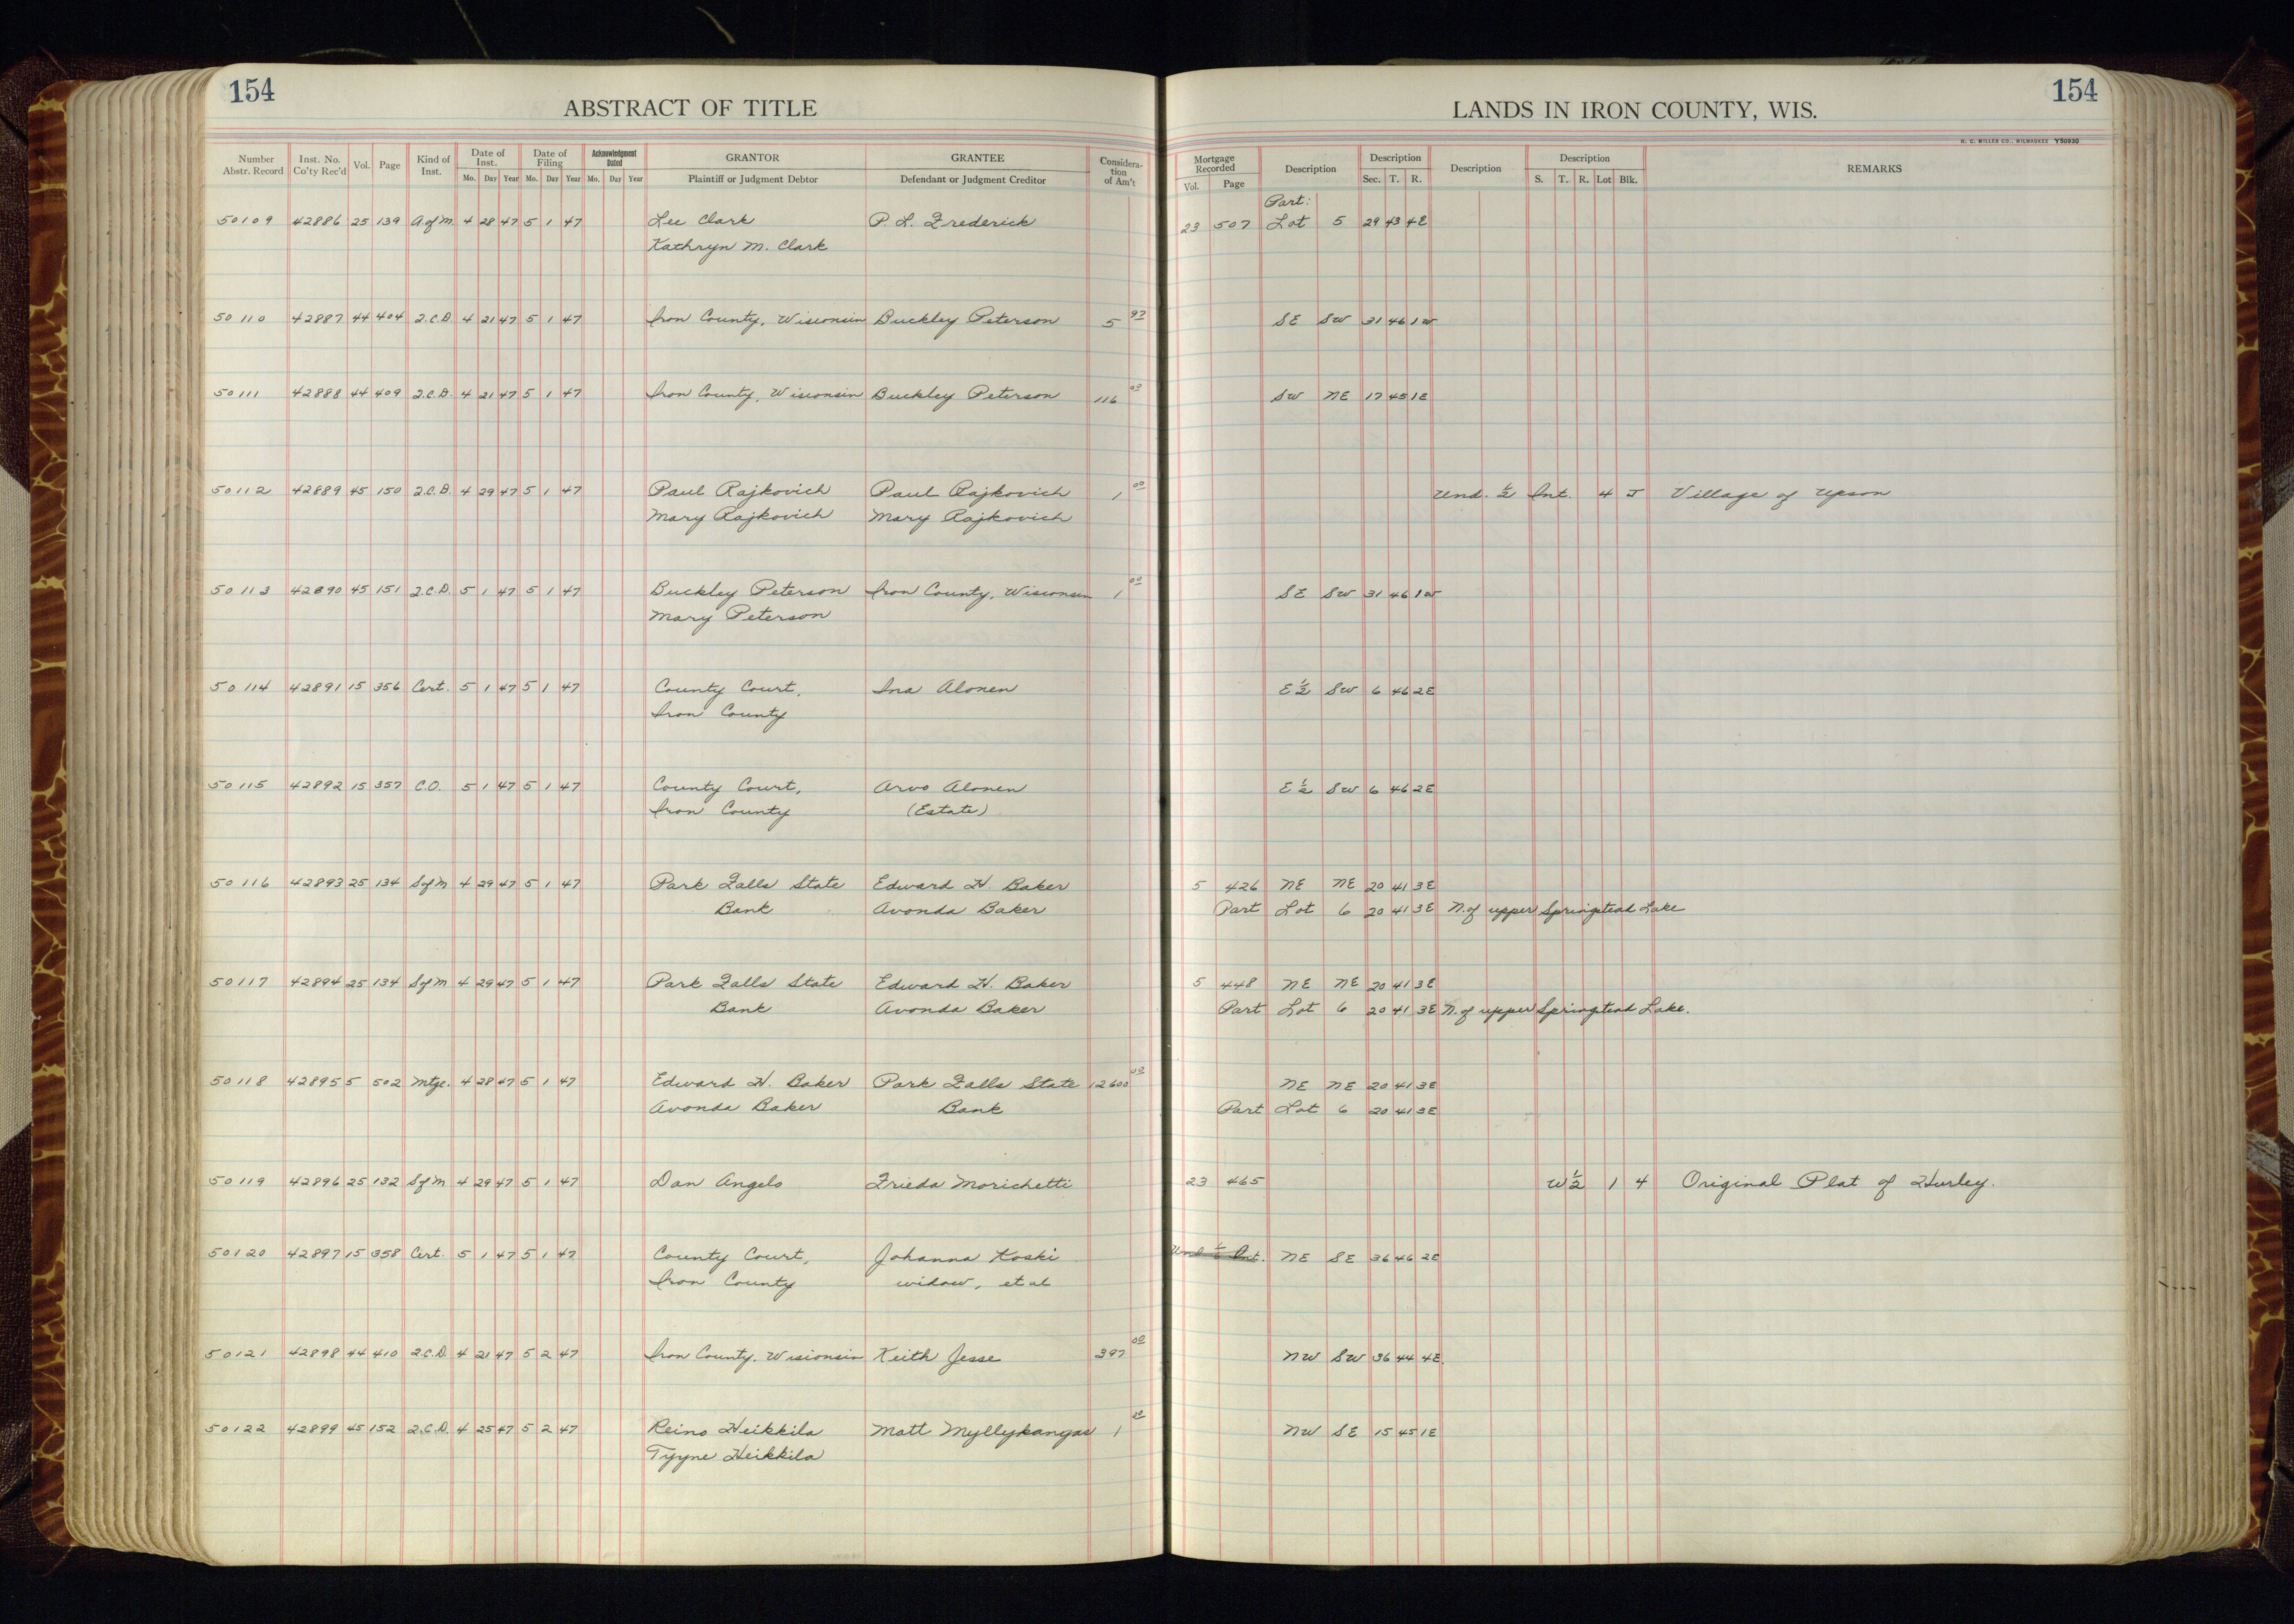 154
ABSTRACT OF TITLE
LANDS IN IRON COUNTY, WIS.
154
H. C. MILLER CO., MILWAUKEE Y50930
Number Abstr. Record | Inst. No. Co'ty Rec'd | Vol. | Page | Kind of Inst. | Date of Inst. Mo. Day Year | Date of Filing Mo. Day Year | Acknowledgment Dated Mo. Day Year | GRANTOR Plaintiff or Judgment Debtor | GRANTEE Defendant or Judgment Creditor | Considera-tion of Am't | Mortgage Recorded Vol. Page | Description | Description Sec. T. R. | Description | Description S. T. R. Lot Blk. | REMARKS
Part:
50109 42886 25 139 A of M. 4 28 47 5 1 47 Lee Clark P. L. Frederick 23 507 Lot 5 29 43 4E
Kathryn M. Clark
50110 42887 44 404 Q.C.D. 4 21 47 5 1 47 Iron County, Wisconsin Buckley Peterson 5 93 SE SW 31 46 1W
50111 42888 44 409 Q.C.D. 4 21 47 5 1 47 Iron County, Wisconsin Buckley Peterson 116 00 SW NE 17 45 1E
50112 42889 45 150 Q.C.D. 4 29 47 5 1 47 Paul Rajkovich Paul Rajkovich 1 00 Und. ½ Int. 4 J Village of Upson
Mary Rajkovich Mary Rajkovich
50113 42890 45 151 Q.C.D. 5 1 47 5 1 47 Buckley Peterson Iron County, Wisconsin 1 00 SE SW 31 46 1W
Mary Peterson
50114 42891 15 356 Cert. 5 1 47 5 1 47 County Court, Ina Alonen E½ SW 6 46 2E
Iron County
50115 42892 15 357 C.O. 5 1 47 5 1 47 County Court, Arvo Alonen E½ SW 6 46 2E
Iron County (Estate)
50116 42893 25 134 S of M 4 29 47 5 1 47 Park Falls State Edward H. Baker 5 426 NE NE 20 41 3E
Bank Avonda Baker Part Lot 6 20 41 3E N. of upper Springstead Lake
50117 42894 25 134 S of M 4 29 47 5 1 47 Park Falls State Edward H. Baker 5 448 NE NE 20 41 3E
Bank Avonda Baker Part Lot 6 20 41 3E N. of upper Springstead Lake.
50118 42895 5 502 Mtge. 4 28 47 5 1 47 Edward H. Baker Park Falls State 12600 00 NE NE 20 41 3E
Avonda Baker Bank Part Lot 6 20 41 3E
50119 42896 25 132 S of M 4 29 47 5 1 47 Dan Angelo Frieda Morichetti 23 465 W½ 1 4 Original Plat of Hurley.
50120 42897 15 358 Cert. 5 1 47 5 1 47 County Court, Johanna Koski Und Int. NE SE 36 46 2E
Iron County widow, et al
50121 42898 44 410 Q.C.D. 4 21 47 5 2 47 Iron County, Wisionsin Keith Jesse 397 00 NW SW 36 44 4E.
50122 42899 45 152 Q.C.D. 4 25 47 5 2 47 Reino Heikkila Matt Myllykangas 1 00 NW SE 15 45 1E
Tyyne Heikkila